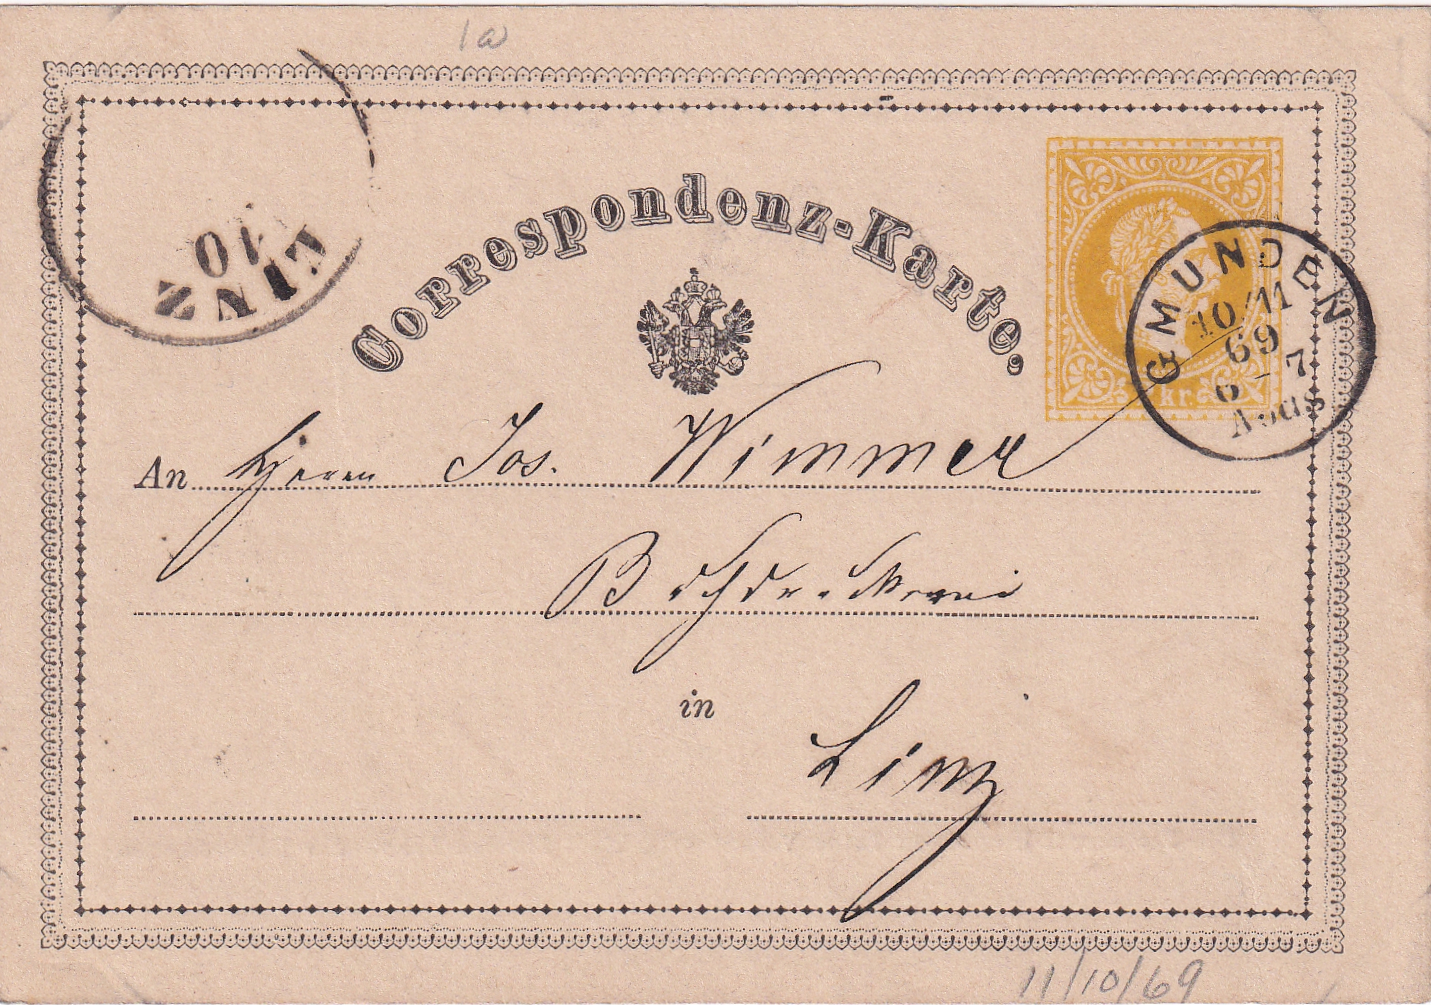 1a
Correspondenz-Karte.
LINZ
10
GMUNDEN
10/11
69
6-7
Abds
kr.
An Herrn Jos. Wimmer
Buchdruckerei
in
Linz
11/10/69